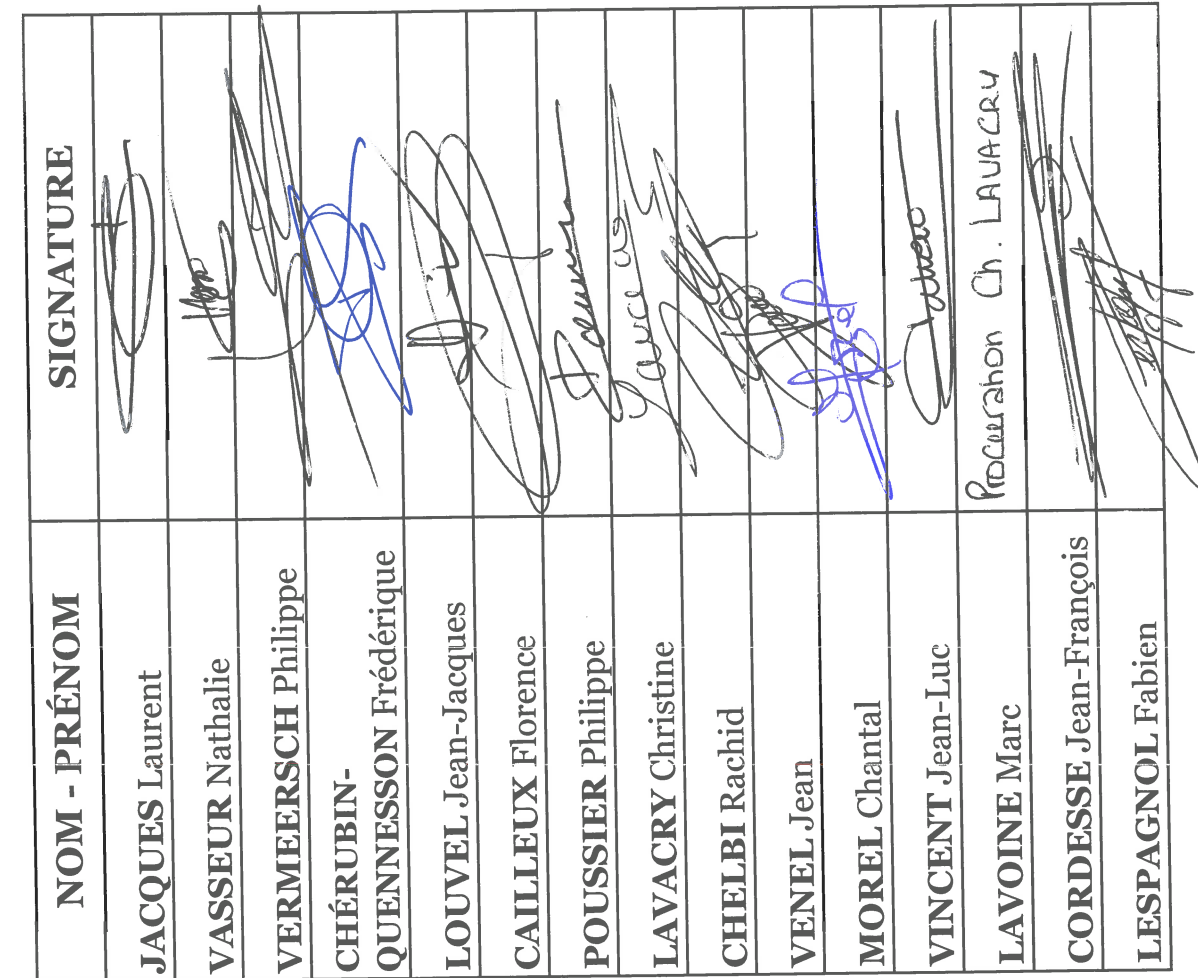 NOM - PRÉNOM SIGNATURE
JACQUES Laurent
VASSEUR Nathalie
VERMEERSCH Philippe
CHÉRUBIN-
QUENNESSON Frédérique
LOUVEL Jean-Jacques
CAILLEUX Florence
POUSSIER Philippe
LAVACRY Christine
CHELBI Rachid
VENEL Jean
MOREL Chantal
VINCENT Jean-Luc
LAVOINE Marc Procuration Ch. LAVACRY
CORDESSE Jean-François
LESPAGNOL Fabien